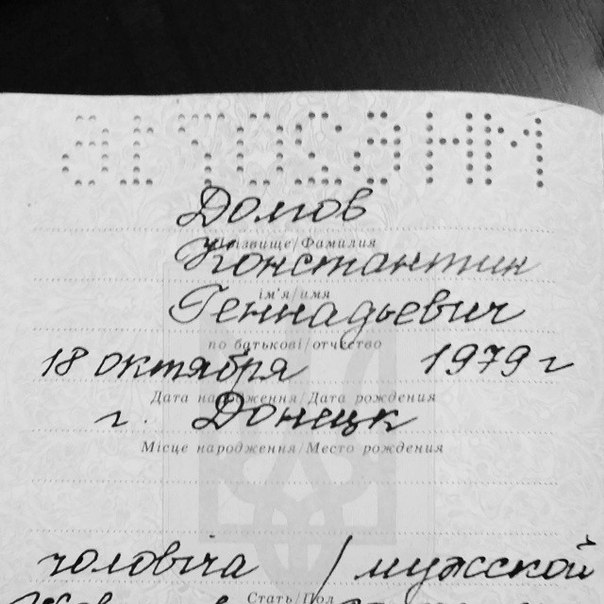 Долгов
Прізвище/Фамилия
Константин
ім'я/имя
Геннадьевич
по батькові/отчество
18 октября 1979 г
Дата народження/Дата рождения
г. Донецк
Місце народження/Место рождения
чоловіча / мужской
Стать/Пол